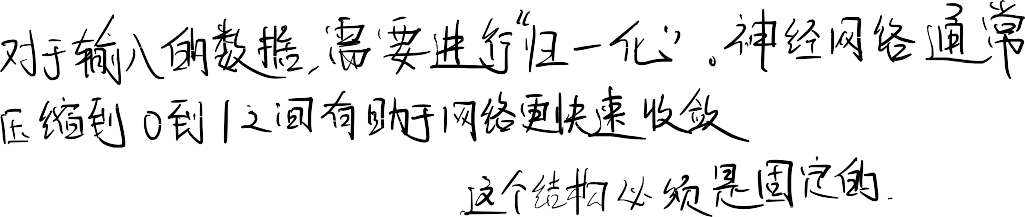 对于输入的数据,需要进行“归一化”。神经网络通常
压缩到0到1之间有助于网络更快速收敛
这个结构必须是固定的.